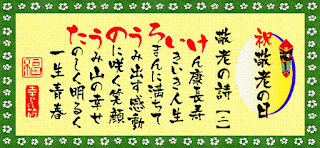 祝
敬老の日
敬老の詩
けん康長寿
いきいき人生
ろまんに満ちて
うみ出す感動
のに咲く笑顔
うみ山の幸せ
たのしく明るく
一生青春
福